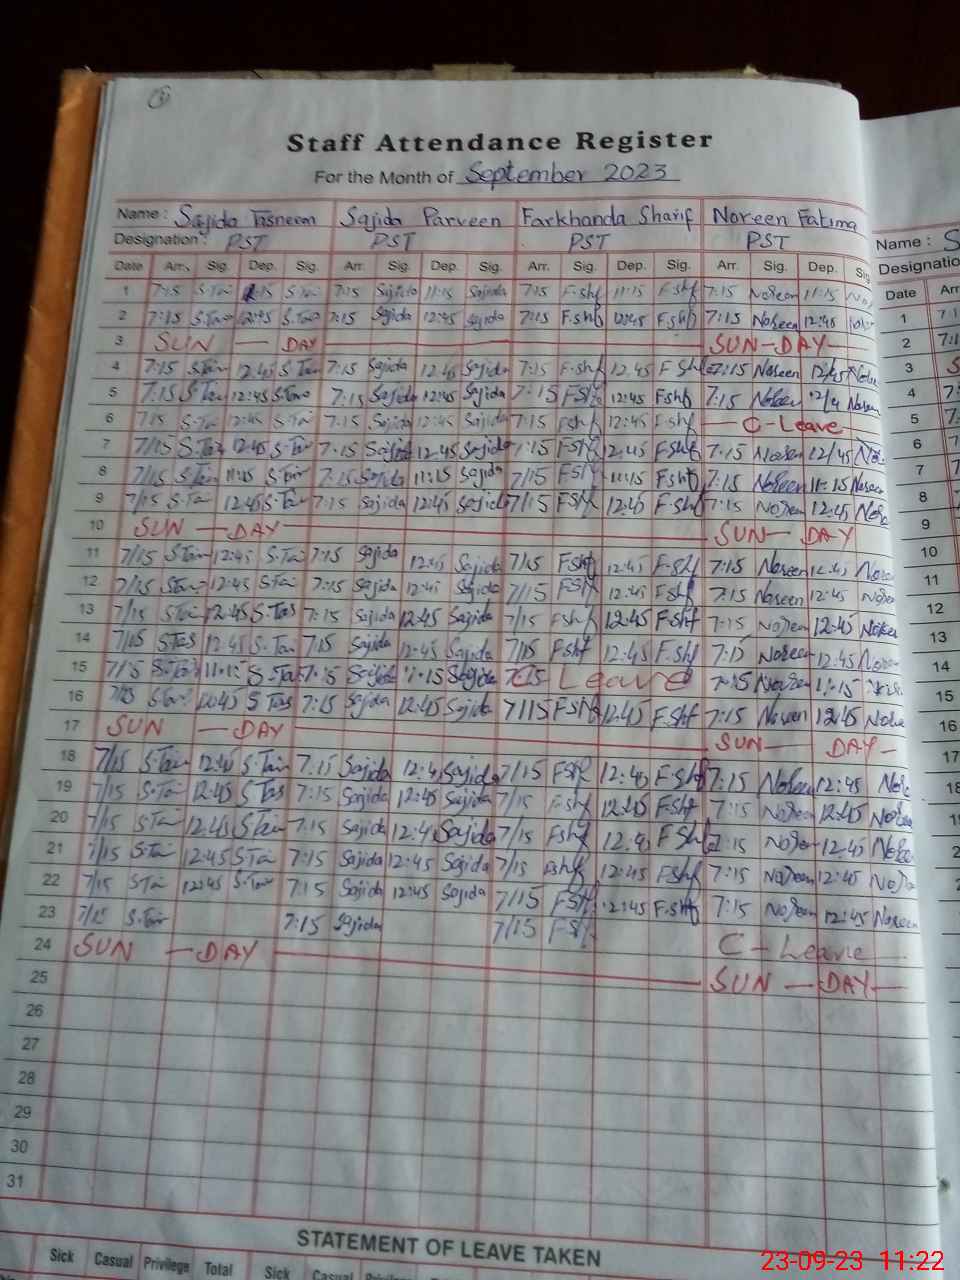 Staff Attendance Register
For the Month of September 2023
Name : Sajida Tasneem Sajida Parveen Farkhanda Sharif Noreen Fatima
Designation : PST PST PST PST
Date Arr. Sig. Dep. Sig. Arr. Sig. Dep. Sig. Arr. Sig. Dep. Sig. Arr. Sig. Dep. Sig
1 7:15 S.Tas S.Tas 7:15 Sajida 11:15 Sajida 7:15 F.shf 11:15 F.shf 7:15 Noreen 11:15
2 7:15 S.Tas 12:45 S.Tas 7:15 Sajida 12:45 Sajida 7:15 F.shf 12:45 F.shf 7:15 Noreen 12:45
3 SUN — DAY SUN-DAY
4 7:15 S.Tas 12:45 S.Tas 7:15 Sajida 12:45 Sajida 7:15 F.shf 12.45 F.Shf 7:15 Noreen 12/45
5 7:15 S.Tas 12:45 S.Tas 7:15 Sajida 12:45 Sajida 7:15 FShf 12:45 Fshf 7:15 Noreen Noreen
6 7:15 S.Tas 12:45 S.Tas 7:15 Sajida 12:45 Sajida 7:15 Fshf 12:45 F.shf C-Leave
7 7/15 S.Tas 12:45 S.Tas 7:15 Sajida 12:45 Sajida 7:15 FShf 12:45 F.Shf 7:15 Noreen 12/45
8 7/15 S.Tas 11:15 S.Tas 7:15 Sajida 11:15 Sajida 7/15 FShf 11:15 Fshf 7:15 Noreen 11:15 Noreen
9 7/15 S.Tas 12.45 S.Tas 7:15 Sajida 12:45 Sajida 7/15 FShf 12:45 F.Shf 7:15 Noreen 12:45
10 SUN — DAY SUN — DAY
11 7/15 S.Tas 12:45 S.Tas 7:15 Sajida 12:45 Sajida 7/15 FShf 12:45 F.Shf 7:15 Noreen 12:45
12 7/15 S.Tas 12:45 S.Tas 7:15 Sajida 12:45 Sajida 7/15 FShf 12:45 F.Shf 7:15 Noreen 12:45
13 7/15 S.Tas 12:45 S.Tas 7:15 Sajida 12:45 Sajida 7/15 Fshf 12:45 F.Shf 7:15 Noreen 12:45
14 7/15 S.Tas 12:45 S.Tas 7:15 Sajida 12:45 Sajida 7/15 FShf 12:45 F.Shf 7:15 Noreen 12:45
15 7/15 S.Tas 11:15 S.Tas 7:15 Sajida 11:15 Sajida C- Leave 7:15 Noreen 11:15
16 7/15 S.Tas 12:45 S.Tas 7:15 Sajida 12:45 Sajida 7/15 FShf 12:45 F.Shf 7:15 Noreen 12:45
17 SUN — DAY SUN — DAY
18 7/15 S.Tas 12:45 S.Tas 7:15 Sajida Sajida 7/15 FShf 12:45 F.Shf 7:15 Noreen 12:45
19 7/15 S.Tas 12:45 S.Tas 7:15 Sajida 12:45 Sajida 7/15 F.shf 12:45 F.Shf 7:15 Noreen 12:45
20 7/15 S.Tas 12:45 S.Tas 7:15 Sajida Sajida 7/15 Fshf F.Shf 7:15 Noreen 12:45
21 7/15 S.Tas 12:45 S.Tas 7:15 Sajida 12:45 Sajida 7/15 Fshf 12:45 F.Shf 7:15 Noreen 12:45
22 7/15 S.Tas 12:45 S.Tas 7:15 Sajida 12:45 Sajida 7/15 FShf 12:45 F.Shf 7:15 Noreen 12:45 Noreen
23 7/15 S.Tas 7:15 Sajida 7/15 FShf C- Leave
24 SUN — DAY SUN — DAY
25
26
27
28
29
30
31
STATEMENT OF LEAVE TAKEN
Sick Casual Privilege Total Sick Casual
Name : S
Designatio
Date Arr
1
2
3
4
5
6
7
8
9
10
11
12
13
14
15
16
17
18
23-09-23 11:22